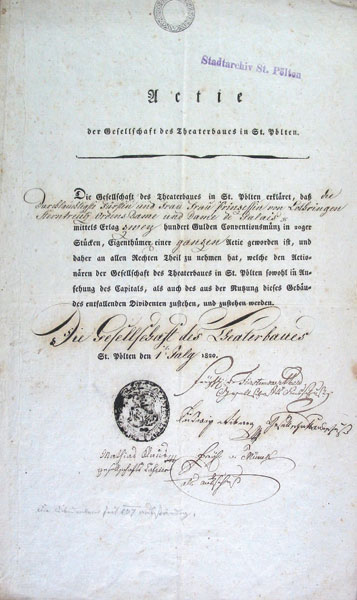 Stadtarchiv St. Pölten
Actie
der Gesellschaft des Theaterbaues in St. Pölten.
Die Gesellschaft des Theaterbaues in St. Pölten erkläret, daß die
durchlauchtigste Fürstin und Frau Frau Prinzessin von Lothringen
Sternkreutz Ordens Dame und Dame du Palais
mittels Erlag zwey hundert Gulden Conventionsmünz in 20ger
Stücken, Eigenthümer einer ganzen Actie geworden ist, und
daher an allen Rechten Theil zu nehmen hat, welche den Actio-
nären der Gesellschaft des Theaterbaues in St. Pölten sowohl in An-
sehung des Capitals, als auch des aus der Nutzung dieses Gebäu-
des entfallenden Dividenten zustehen, und zustehen werden.
Die Gesellschaft des Theaterbaues
St. Pölten den 1t July 1820.
Ludwig
Mathias
als Ausschuß